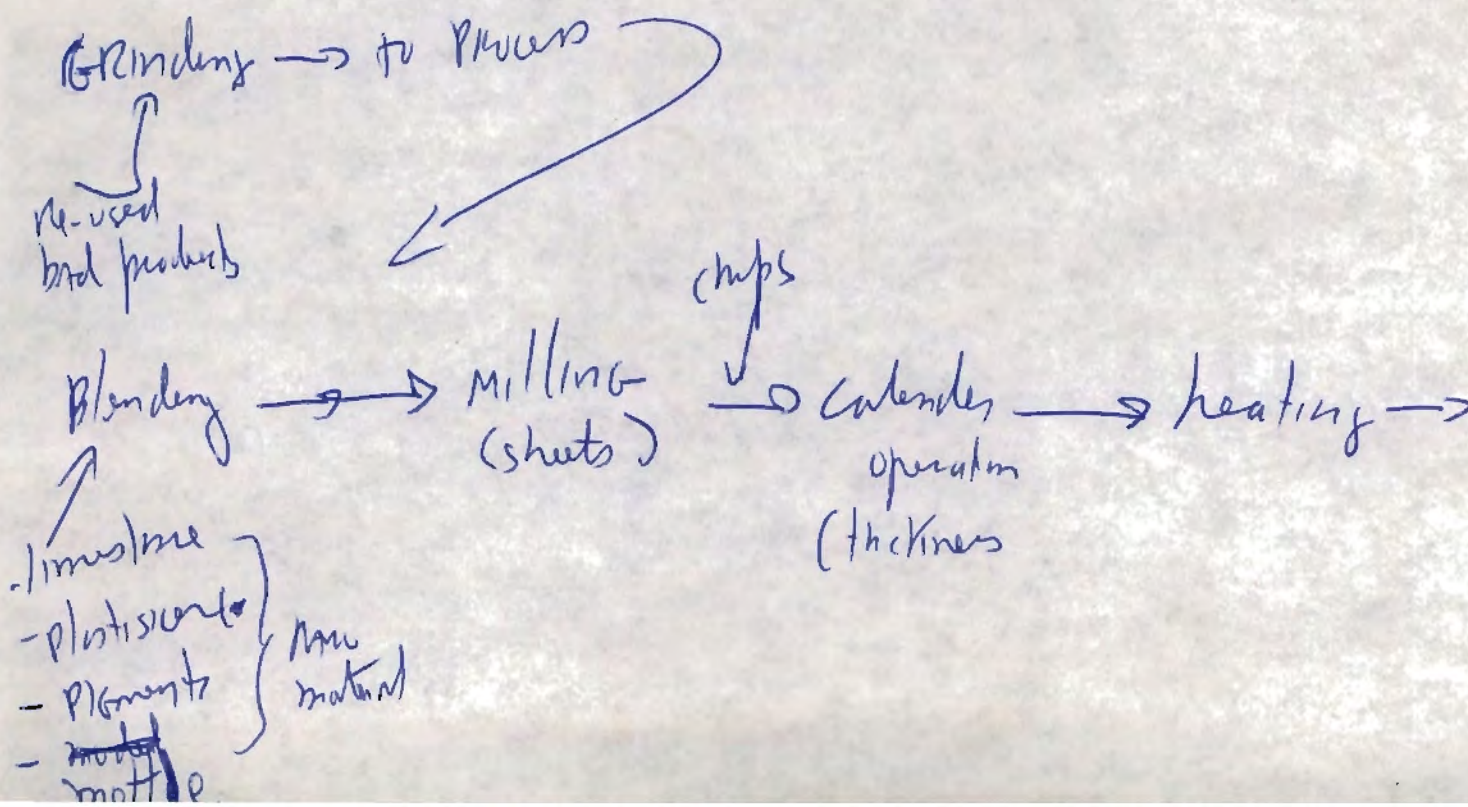 GRinding → to Process
re-used
bad products
chips
Blending → Milling → Calender → heating →
(sheets)
operation
(thickness
- limestone
- plastisizer
- Pigments
- mottle
Raw
material